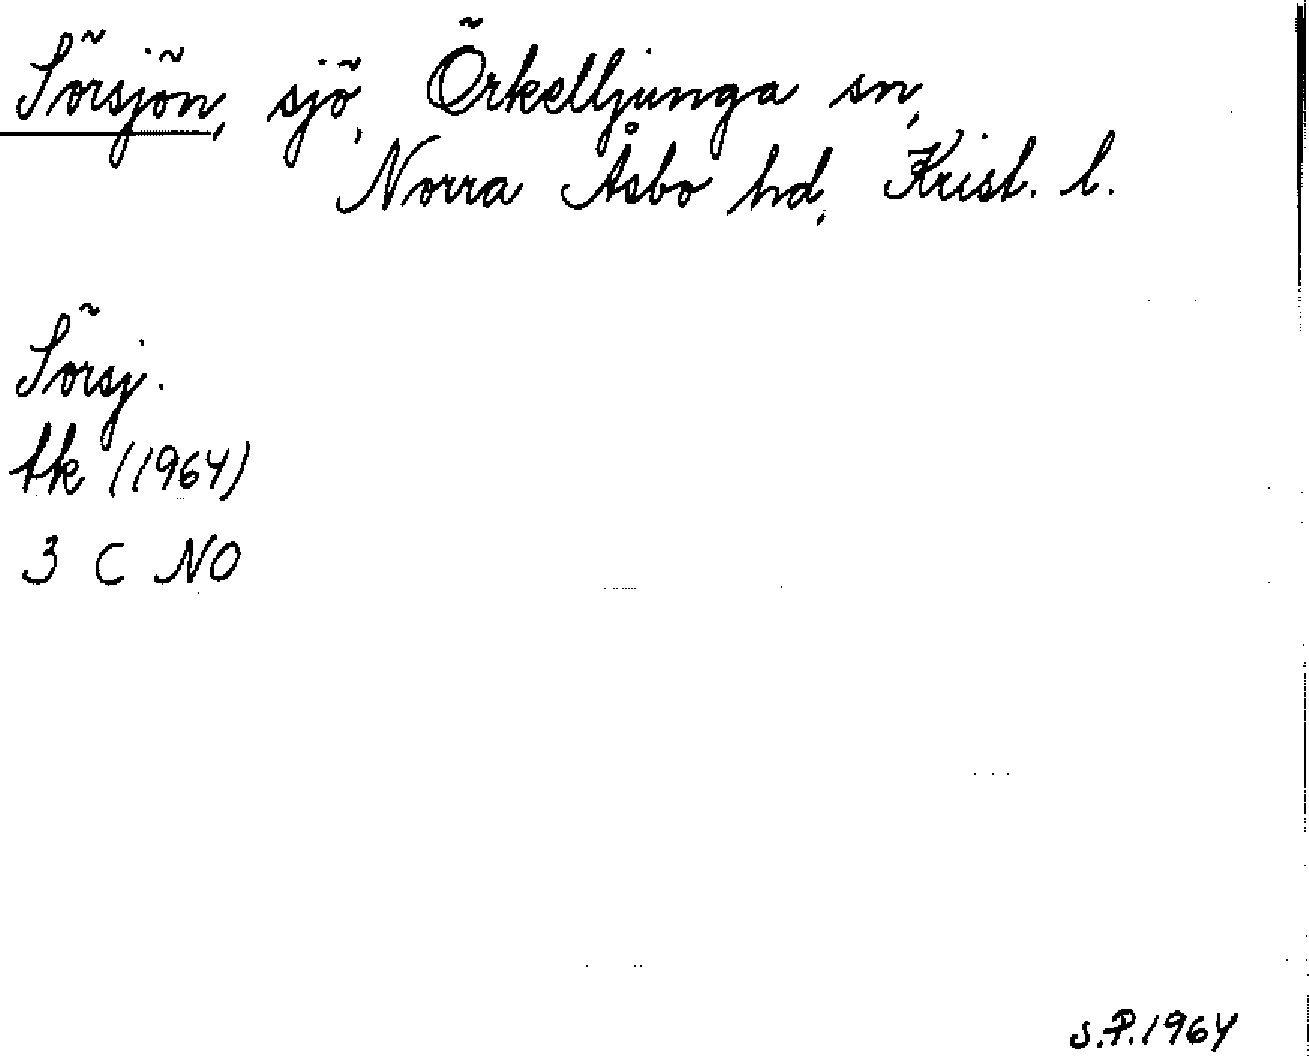 Sörsjön, sjö, Örkelljunga sn,
Norra Åsbo hd, Krist. l.
Sörsj.
tk (1964)
3 C NO
S.P.1964